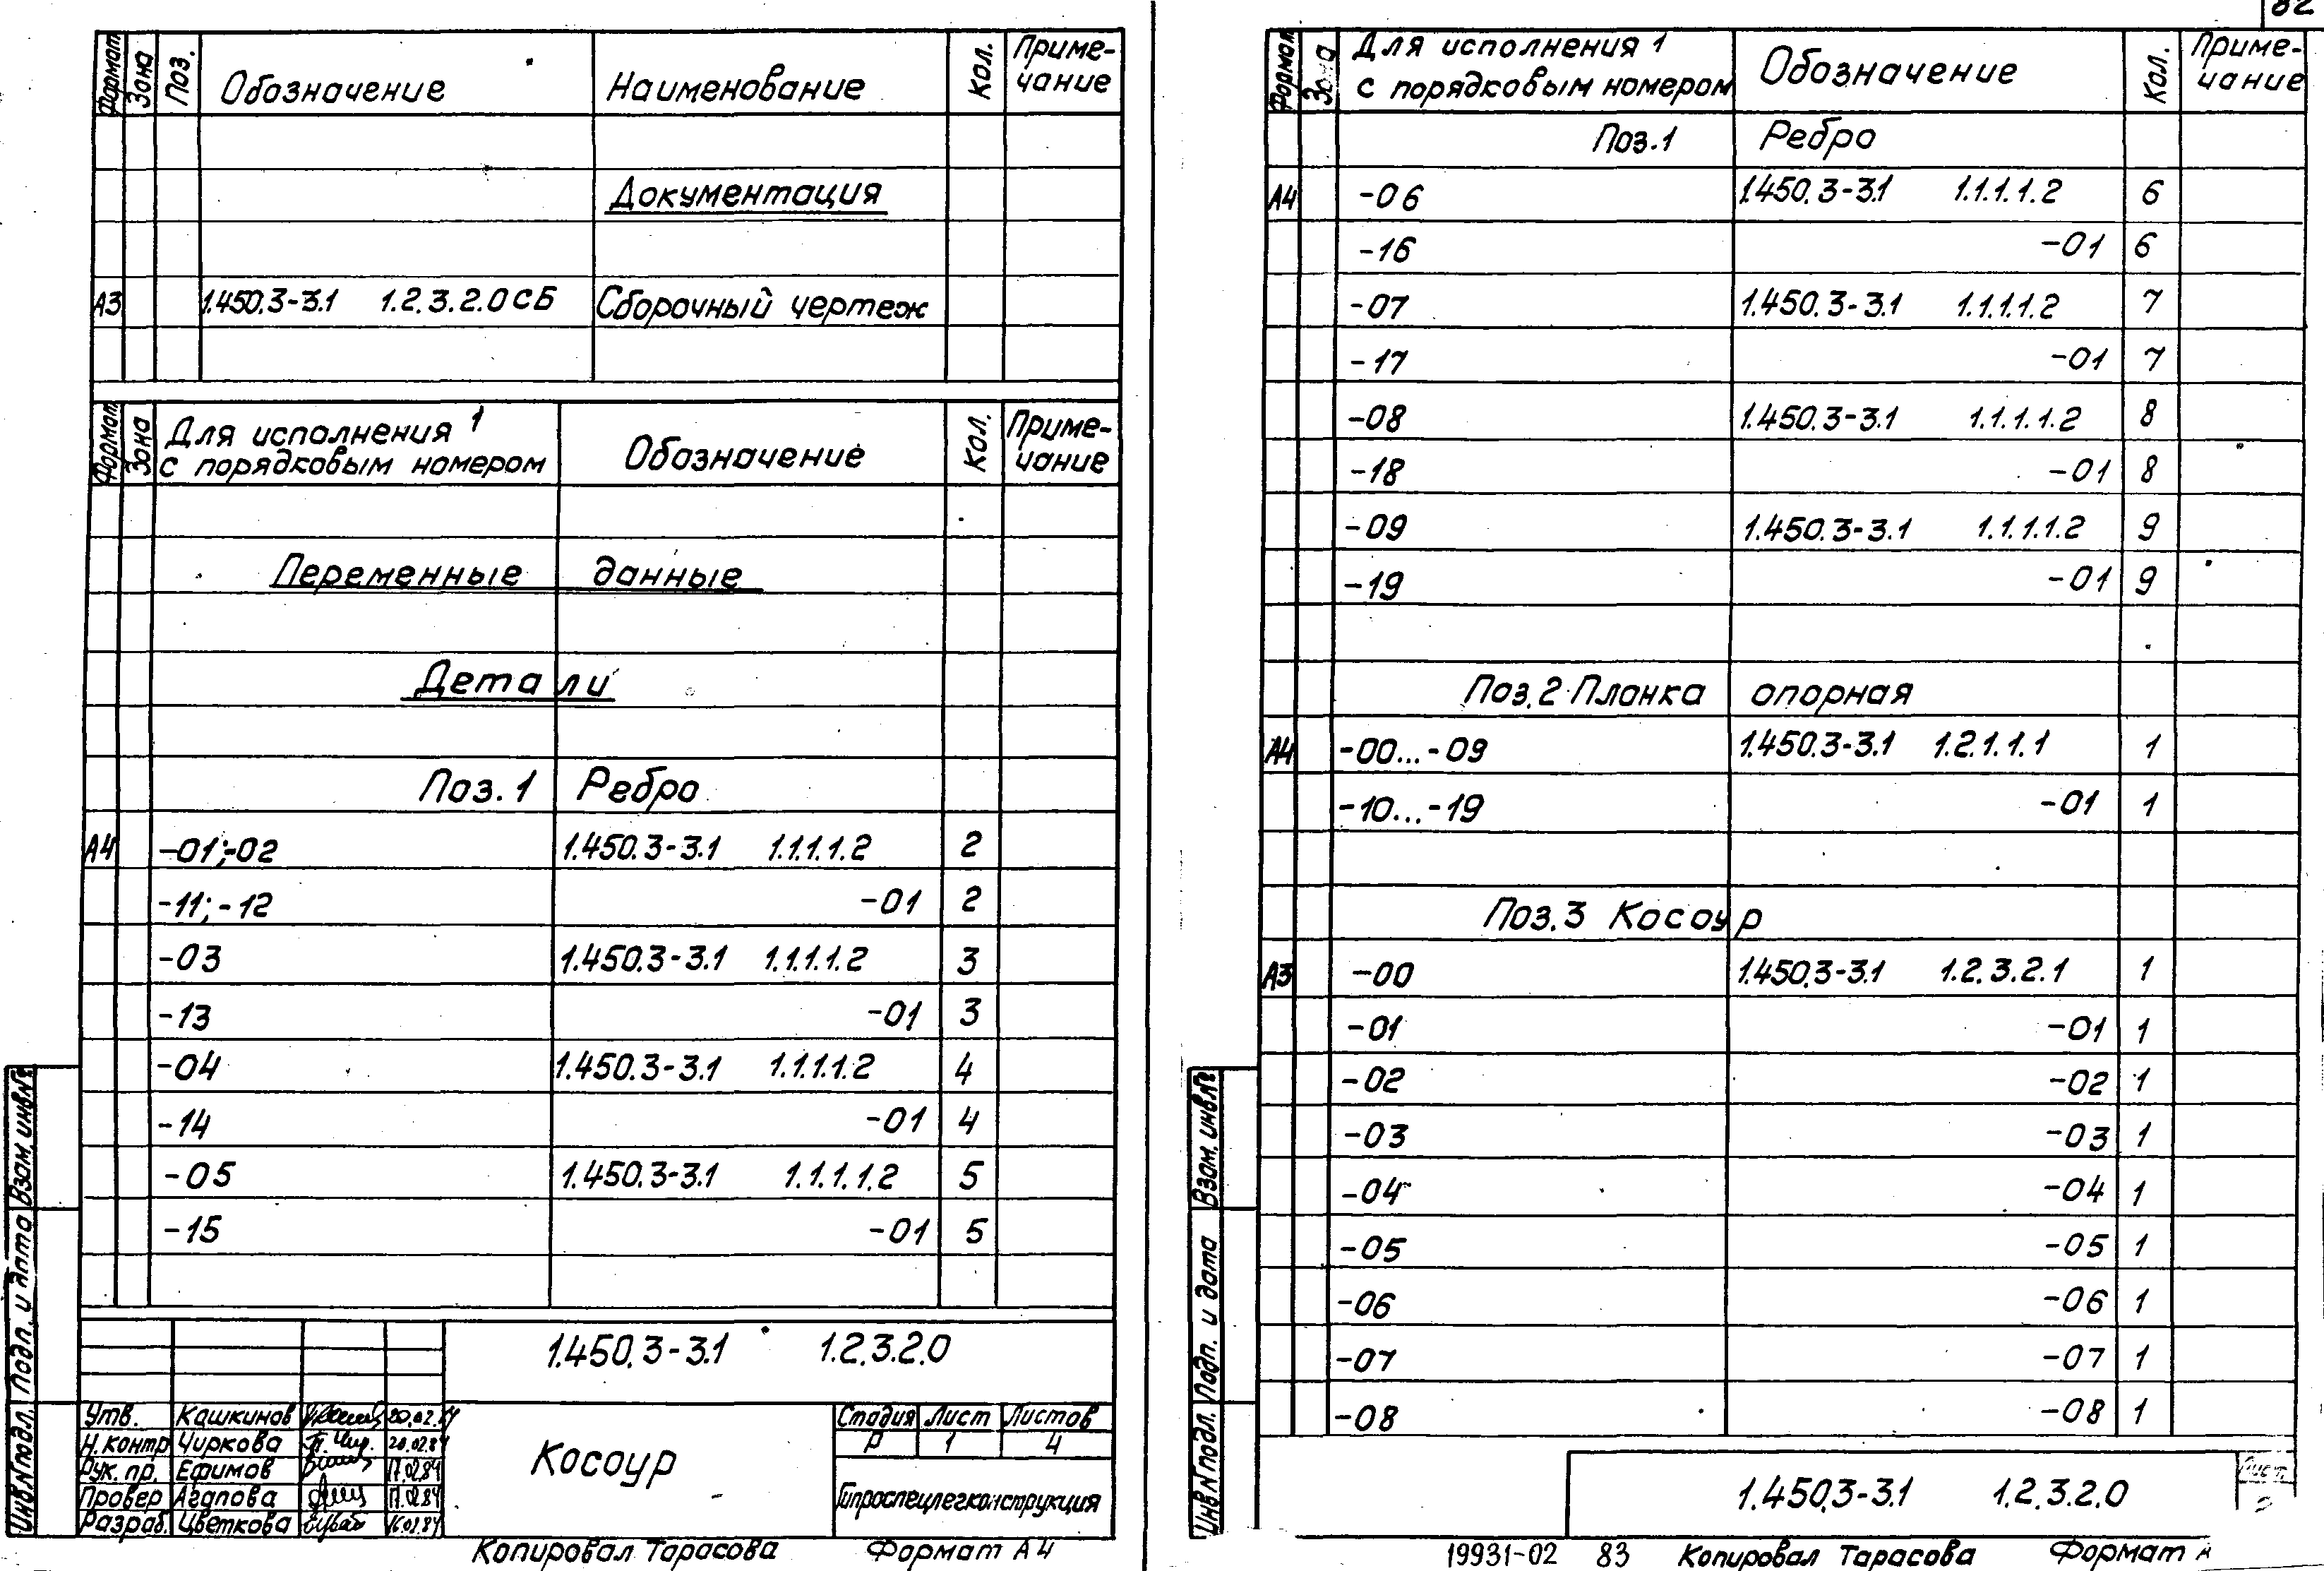 Формат Зона Поз. Обозначение Наименование Кол. Приме-
чание
Документация
А3 1.450.3-3.1 1.2.3.2.0 СБ Сборочный чертеж
Формат Зона Для исполнения 1
с порядковым номером Обозначение Кол. Приме-
чание
Переменные данные
Детали
Поз. 1 Ребро
А4 -01;-02 1.450.3-3.1 1.1.1.1.2 2
-11;-12 -01 2
-03 1.450.3-3.1 1.1.1.1.2 3
-13 -01 3
-04 1.450.3-3.1 1.1.1.1.2 4
-14 -01 4
-05 1.450.3-3.1 1.1.1.1.2 5
-15 -01 5
Взам. инв№
Подп. и дата
Инв№подл.
1.450.3-3.1 1.2.3.2.0
Утв. Кашкинов 20.02.84
Н.контр Чиркова 20.02.84
Рук. пр. Ефимов 17.02.84
Провер Агапова 17.02.84
Разраб. Цветкова 16.02.84
Косоур
Стадия Лист Листов
Р 1 4
Гипроспецлегконструкция
Копировал Тарасова Формат А4
82
Формат Зона Для исполнения 1
с порядковым номером Обозначение Кол. Приме-
чание
Поз.1 Ребро
А4 -06 1.450.3-3.1 1.1.1.1.2 6
-16 -01 6
-07 1.450.3-3.1 1.1.1.1.2 7
-17 -01 7
-08 1.450.3-3.1 1.1.1.1.2 8
-18 -01 8
-09 1.450.3-3.1 1.1.1.1.2 9
-19 -01 9
Поз.2 Планка опорная
А4 -00...-09 1.450.3-3.1 1.2.1.1.1 1
-10...-19 -01 1
Поз.3 Косоур
А3 -00 1.450.3-3.1 1.2.3.2.1 1
-01 -01 1
-02 -02 1
-03 -03 1
-04 -04 1
-05 -05 1
-06 -06 1
-07 -07 1
-08 -08 1
Взам. инв№
Подп. и дата
Инв№подл.
1.450.3-3.1 1.2.3.2.0
Лист
2
19931-02 83 Копировал Тарасова Формат А